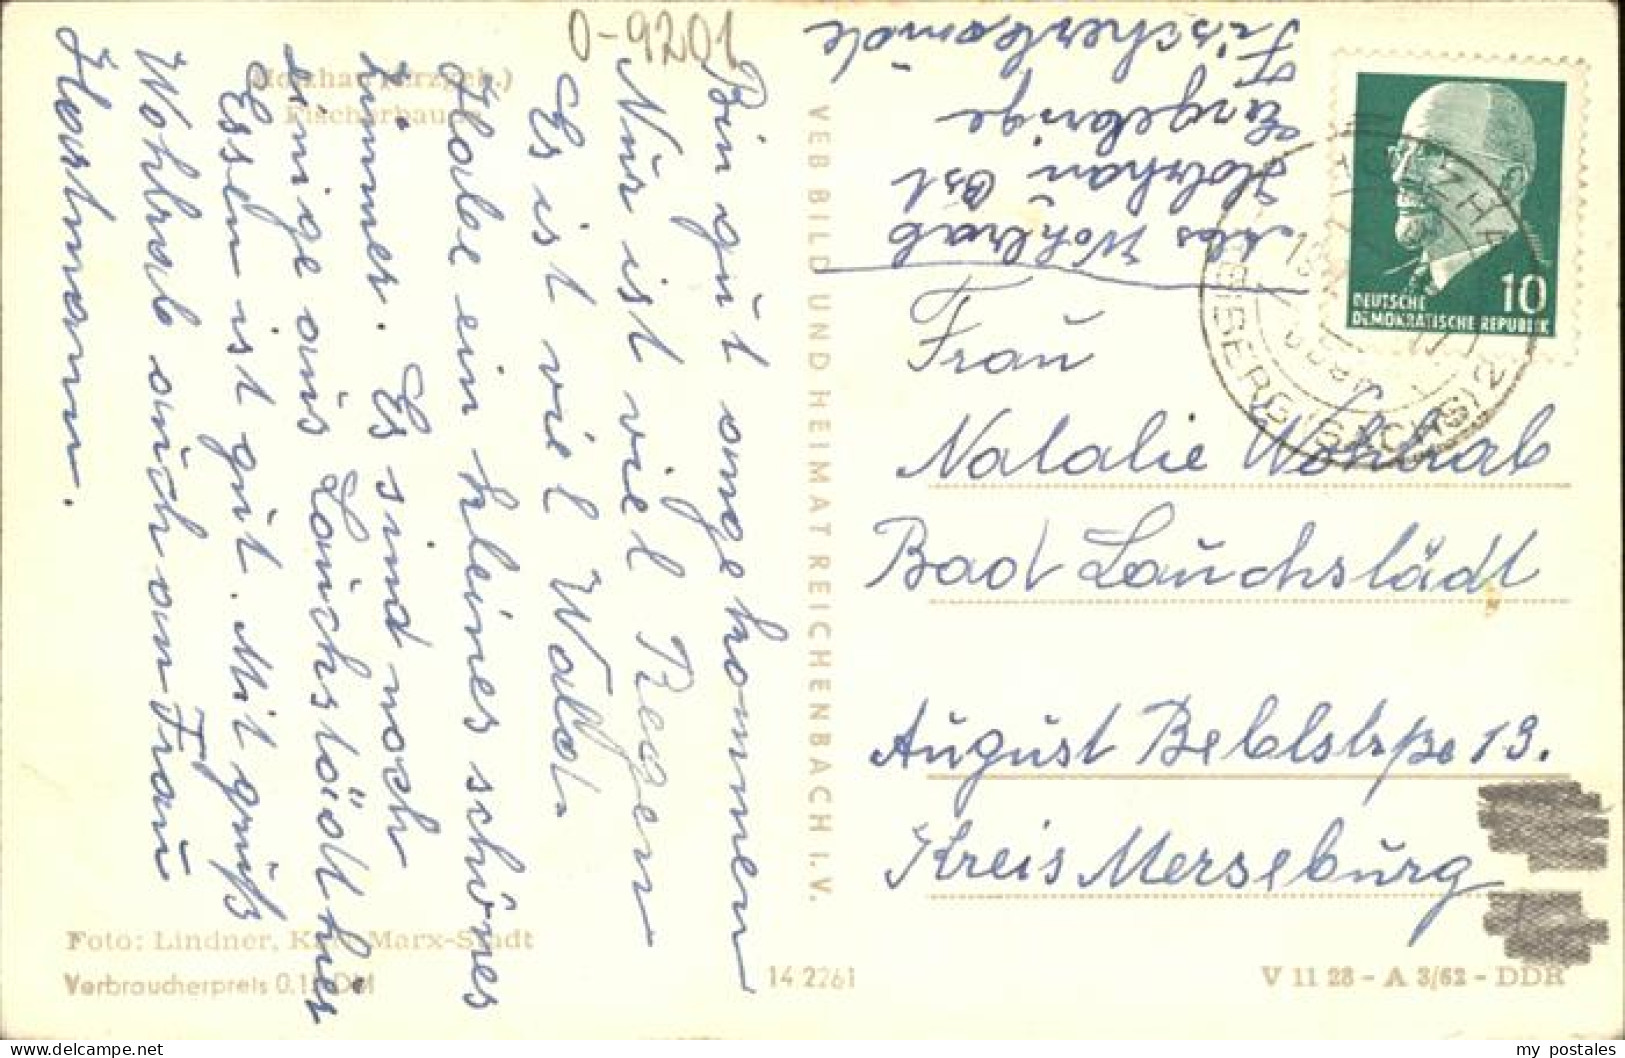 0-9201
Holzhau (Erzgeb.)
Fischerbaude
Bin gut angekommen
Nur ist viel Regen
Es ist viel Wald.
Habe ein kleines schönes
Zimmer. Es sind noch
einige aus Lauchstädt hier
Essen ist gut. Mit gruß
Wohlrab auch an Frau
Hartmann.
Foto: Lindner, Karl-Marx-Stadt
Verbraucherpreis 0.15 DM
VEB BILD UND HEIMAT REICHENBACH I. V.
14 2261
Abs Wohlrab
Holzhau Ost
Erzgebirge
DEUTSCHE
DEMOKRATISCHE REPUBLIK
10
Frau
Natalie Wohlrab
Bad Lauchstädt
August Beblstrße 19.
Kreis Merseburg
V 11 28 - A 3/62 - DDR
my postales